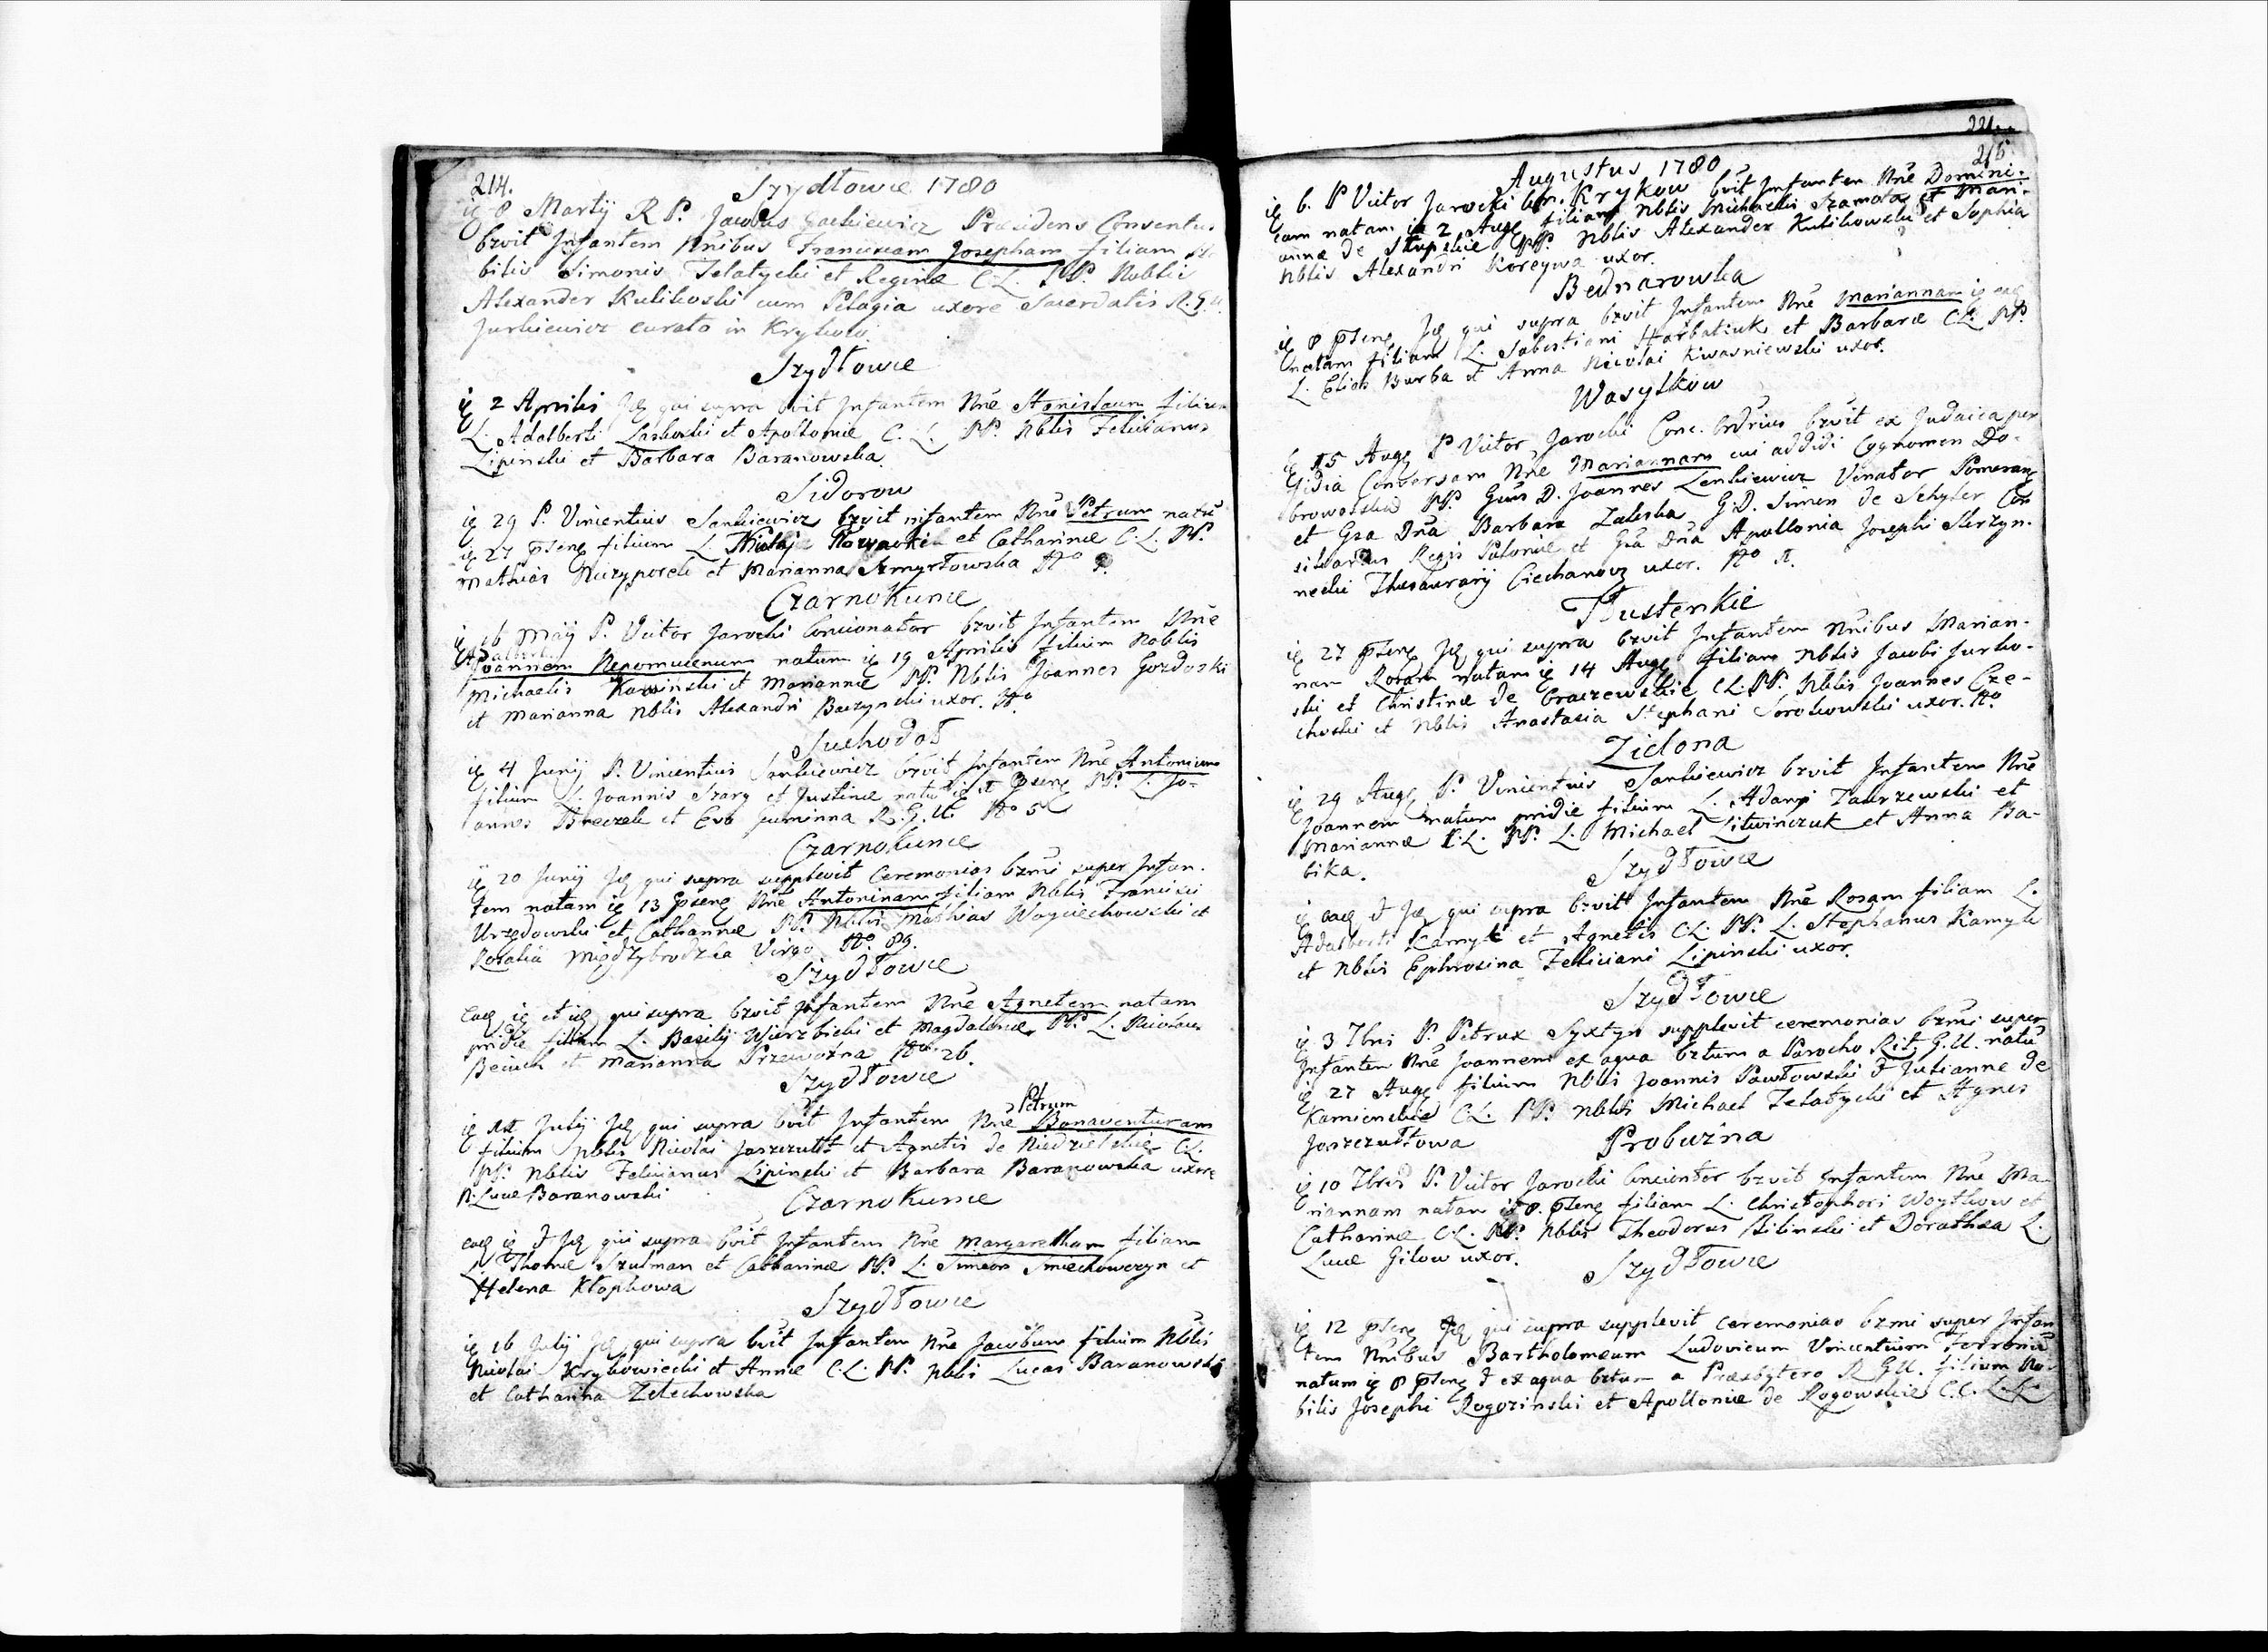 214.
Szydłowce 1780
8 Martij R P. Jacobus Gackiewicz Præsidens Conventus
bzvit Infantem Nnibus Franciscam Josepham filiam No-
bilis Simonis Zelatycki et Reginæ C.L. PP. Noblis
Alexander Kulikoski cum Pelagia uxore Sacerdotis R. G. U.
Jurkiewicz curato in Krykow
Szydłowce
2 Aprilis Id qui supra bvit Infantem Nne Stanislaum filium
L. Adalberti Laskoski et Apolloniæ C. L. PP. Nblis Felicianus
Lipinski et Barbara Baranowska
Sidorow
29 P. Vincentius Sankiewicz bzvit infantem Nne Petrum natū
27 filium L. et Catharinæ C. L. PP.
Mathias Niczyporek et Marianna Szmyrłowska No
Czarnokunce
16 Maij P. Victor Jarocki Concionator bzvit Infantem Nne
Adalbert.
Joannem Nepomucenum natum 19 Aprilis filium Noblis
Michaelis et Mariannæ PP. Nblis Joannes Gozdoski
et Marianna Nblis Alexandri Baczynski uxor. No
Suchodoł
4 Junij P. Vincentius Sankiewicz bzvit Infantem Nne Antonium
filium L. Joannis Szary et Justinæ PP. L. Jo-
annes et Eva R. G. U. No 5
Czarnokunce
20 Junij Id qui supra supplevit Ceremonias bzmi super Infan-
tem natam 13 Nne Antoninam filiam Nblis Francisci
Urzędowski et Catharinæ PP. Nblis Mathias Woyciechowski et
Rosalia Międzybrodzka Virgo. No. 89.
Szydłowce
et id qui supra bzvit Infantem Nne Agnetem natam
pridie filiam L. Basilij Wierzbicki et Magdalenæ PP. L. Nicolaus
et Marianna Przewoźna No. 26.
Szydłowce
Petrum
Julij Id qui supra bvit Infantem Nne Bonaventuram
filium Nblis Nicolai Jaszczułt et Agnetis de Niedzielskie C.L.
PP. Nblis Felicianus Lipinski et Barbara Baranowska uxore
N. Lucæ Baranowski
Czarnokunce
qui supra bvit Infantem Nne Margaretham filiam
L. Thomæ Szulman et Catharinæ PP. L. Simeon et
Helena Kłopkowa
Szydłowce
16 Julij Id qui supra bvit Infantem Nne Jacobum filium Nblis
Nicolai Krykowiecki et Annæ C.L. PP. Nblis Lucas Baranowski
et Catharina Zelechowska
221
215.
Augustus 1780
6. P Victor Jarocki Krykow bvit Infantem Nne Domini-
cam natam 2 Aug filiam Nblis Michaelis Szamota et Mari-
annæ de Słupskie PP. Nblis Alexander Kulikowski et Sophia
Nblis Alexandri Koreywa uxor.
Bednarowka
8 Id qui supra bzvit Infantem Nne Mariannam
natam filiam L. Sabestiani Harbatiuk et Barbaræ C.L. PP.
L. Elias Burba et Anna Nicolai Kwasniewski uxor.
Wasylkow
15 Aug P Victor Jarocki Conc. Ordrius bzvit ex Judaica per
fidia Conversam Nne Mariannam cui addidi Cognomen Do-
browolska PP. Gnus D. Joannes Lenkiewicz Venator Pomeran
et Gsa Dna Barbara Zaleska G.D. Simon de Schyler Con
siliarius Regis Poloniæ et Gsa Dna Apollonia Josephi Skrzyn-
necki Thesaurarij Ciechanov uxor. No 1.
Trustenkie
27 Id qui supra bzvit Infantem Nnibus Marian-
nam Rosam natam 14 Aug filiam Nblis Jacobi Jurko-
ski et Christinæ de Graczewskie C.L. PP. Nblis Joannes Cze-
choski et Nblis Anastasia Stephani Sorokowski uxor. No
Zielona
29 Aug P. Vincentius Sankiewicz bzvit Infantem Nne
Joannem natum pridie filium L. Adami Zakrzewski et
Mariannæ C.L. PP. L. Michael Litwinczuk et Anna Ba-
bika.
Szydłowce
qui supra bzvit Infantem Nne Rosam filiam L.
Adalberti Kamyk et Agnetis C.L. PP. L. Stephanus Kamyk
et Nblis Ephrosina Felliciani Lipinski uxor.
Szydłowce
3 7bris P. Petrus Syxtyn supplevit ceremonias bzmi super
Infantem Nne Joannem ex aqua bztum a Parocho Rit. G. U. natū
27 Aug filium Nblis Joannis Pawłowski & Julianne de
Kamienskie C.L. PP. Nblis Michael Zelatycki et Agnes
Jaszczułtowa
Probuźna
10 7bris P. Victor Jarocki Concionator bzvit Infantem Nne Ma-
riannam natam 8. filiam L. Christophori Woytkow et
Catharinæ C.L. PP. Nblis Theodorus Bilinski et Dorothea L.
Lucæ Gilow uxor.
Szydłowce
12 Id qui supra supplevit ceremonias bzmi super Infan
tem Nnibus Bartholomæum Ludovicum Vincentium Ferroniū
natum 8 & ex aqua bztum a Præsbytero R. G. U. filium No-
bilis Josephi Rogozinski et Apolloniæ de Rogowskie C. C. L. L.